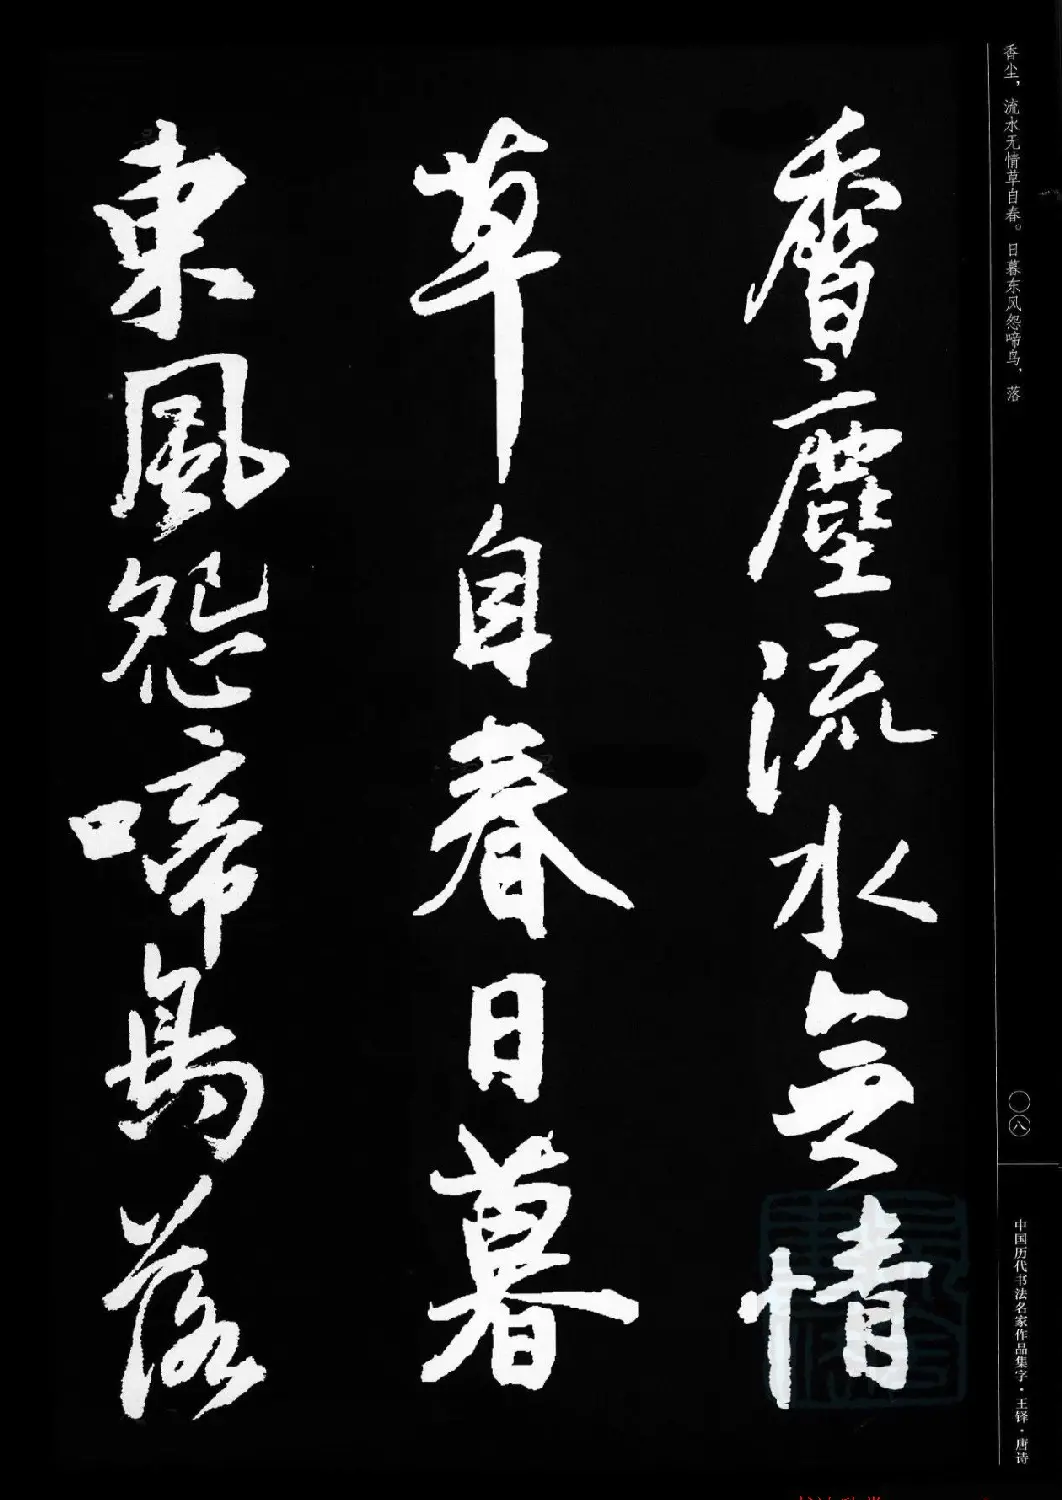 香尘，流水无情草自春。日暮东风怨啼鸟，落
香塵流水無情
草自春日暮
東風怨啼鳥落
〇八
中国历代书法名家作品集字·王铎·唐诗